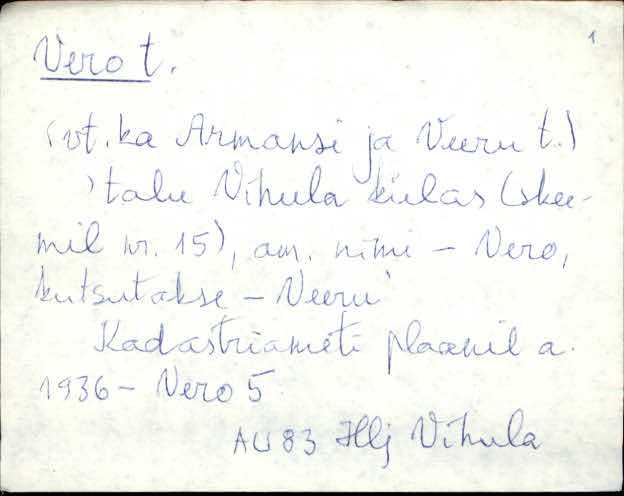 1
Vero t.
(vt. ka Armansi ja Veeru t.)
) talu Vihula külas (skee-
mil nr. 15), am. nimi - Vero,
kutsutakse - Veeru
Kadastriameti plaanil a.
1936 - Vero 5
AU 83 Hlj Vihula